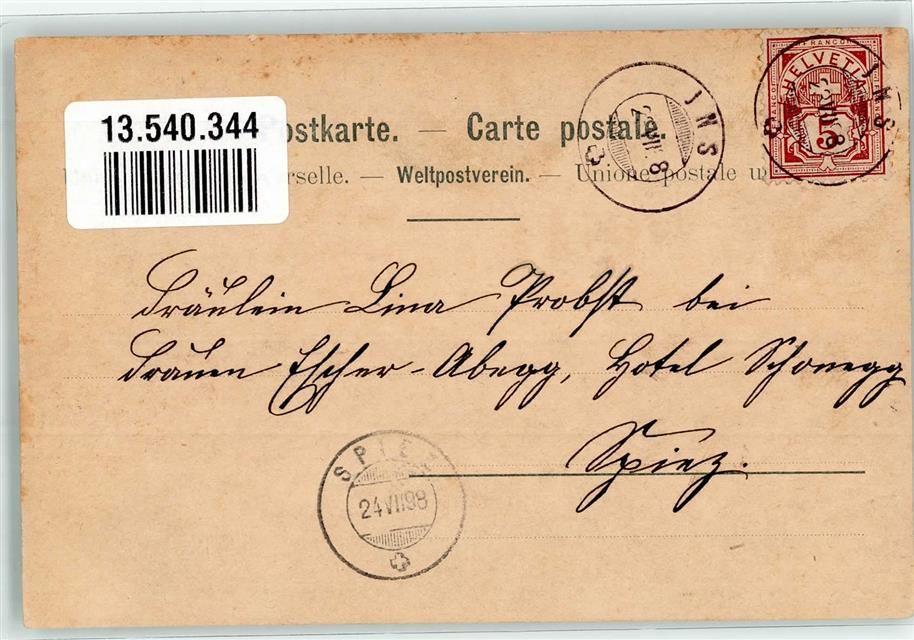 13.540.344
ostkarte. — Carte postale.
rselle. — Weltpostverein. — Unione postale u
JNS
JNS
FRANCO
HELVETIA
5
Fräulein Lina Probst bei
Frauen Escher-Abegg, Hotel Schonegg
Spiez.
SPIEZ
24 VII 98